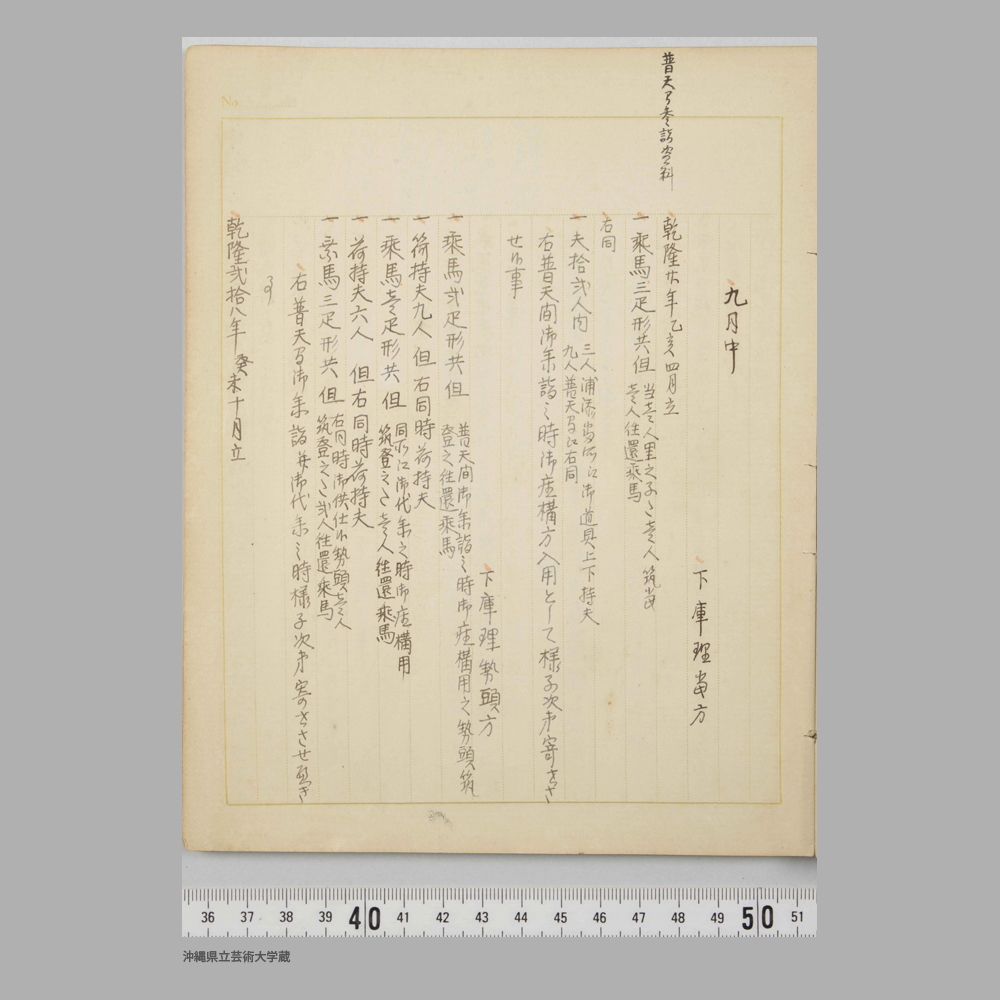 普天間参詣資料
九月中
下庫理當方
乾隆廿年乙亥四月立
一 乗馬三疋形共但 當壱人里之子〻壱人筑當
壱人往還乗馬
右同
一 夫拾弐人内 三人浦添當所江御道具上下持夫
九人普天間江右同
右普天間御参詣之時御座構方入用として様子次第寄させ
せ候事
下庫理勢頭方
一 乗馬弐疋形共但 普天間御参詣之時御座構用之勢頭筑
登之往還乗馬
一 荷持夫九人但右同時荷持夫
一 乗馬壱疋形共但 同所江御代参之時御座構用
筑登之〻壱人往還乗馬
一 荷持夫六人 但右同時荷持夫
一 乗馬三疋形共但 右同時御供仕候勢頭壱人
筑登之〻弐人往還乗馬
右普天間御参詣并御代参之時様子次第寄させ可
事
乾隆弐拾八年癸未十月立
No
36 37 38 39 40 41 42 43 44 45 46 47 48 49 50 51
沖縄県立芸術大学蔵